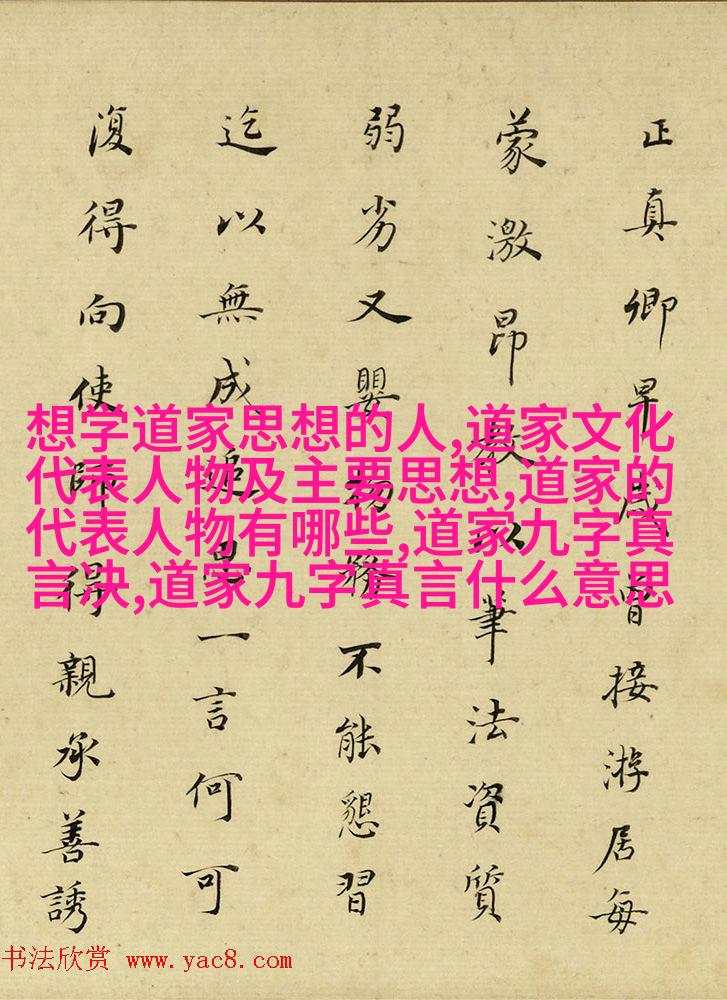 正真卿早歲曾接游居每
蒙激昂教以筆法資質
弱劣又嬰物務不能懇習
迄以無成追思一言何可
復得向使師得親承善誘
想学道家思想的人,道家文化
代表人物及主要思想,道家的
代表人物有哪些,道家九字真
言决,道家九字真言什么意思
书法欣赏 www.yac8.com